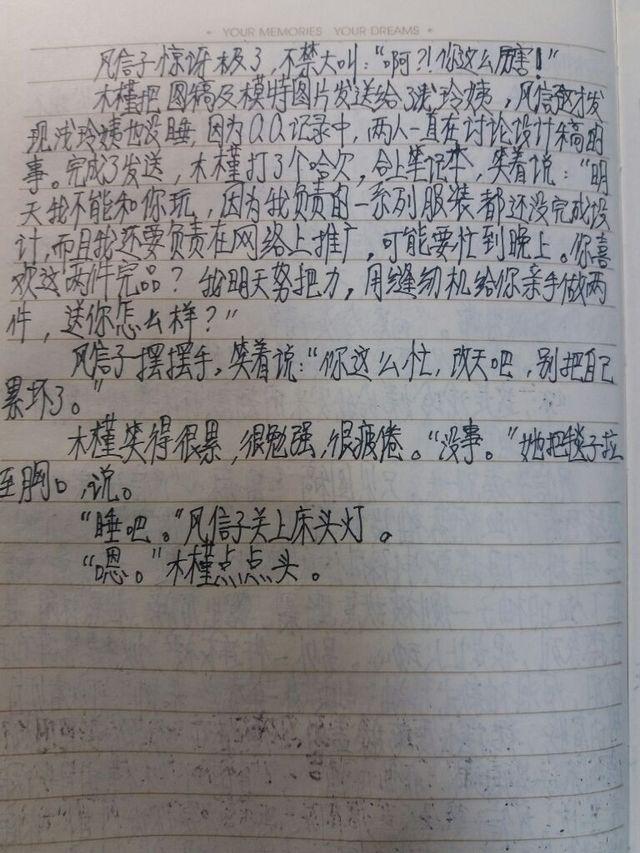 YOUR MEMORIES YOUR DREAMS
风信子惊讶极了，不禁大叫：“啊？！你这么厉害！”
木槿把图稿及模特图片发送给了浅玲姨，风信子才发
现浅玲姨也没睡，因为QQ记录中，两人一直在讨论设计稿的
事。完成了发送，木槿打了个哈欠，合上笔记本，笑着说：“明
天我不能和你玩，因为我负责的一系列服装都还没完成设
计，而且我还要负责在网络上推广，可能要忙到晚上。你喜
欢这两件完品？我明天努把力，用缝纫机给你亲手做两
件，送你怎么样？”
风信子摆摆手，笑着说：“你这么忙，改天吧，别把自己
累坏了。”
木槿笑得很累，很勉强，很疲倦。“没事。”她把毯子拉
至胸口，说。
“睡吧。”风信子关上床头灯。
“嗯。”木槿点点头。